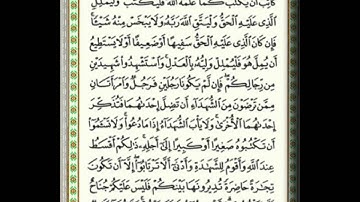 كَاتِبٌ أَن يَكْتُبَ كَمَا عَلَّمَهُ ٱللَّهُ فَلْيَكْتُبْ وَلْيُمْلِلِ
ٱلَّذِى عَلَيْهِ ٱلْحَقُّ وَلْيَتَّقِ ٱللَّهَ رَبَّهُۥ وَلَا يَبْخَسْ مِنْهُ شَيْـًٔا
فَإِن كَانَ ٱلَّذِى عَلَيْهِ ٱلْحَقُّ سَفِيهًا أَوْ ضَعِيفًا أَوْ لَا يَسْتَطِيعُ
أَن يُمِلَّ هُوَ فَلْيُمْلِلْ وَلِيُّهُۥ بِٱلْعَدْلِ وَٱسْتَشْهِدُوا۟ شَهِيدَيْنِ
مِن رِّجَالِكُمْ فَإِن لَّمْ يَكُونَا رَجُلَيْنِ فَرَجُلٌ وَٱمْرَأَتَانِ
مِمَّن تَرْضَوْنَ مِنَ ٱلشُّهَدَآءِ أَن تَضِلَّ إِحْدَىٰهُمَا فَتُذَكِّرَ
إِحْدَىٰهُمَا ٱلْأُخْرَىٰ وَلَا يَأْبَ ٱلشُّهَدَآءُ إِذَا مَا دُعُوا۟ وَلَا تَسْـَٔمُوٓا۟
أَن تَكْتُبُوهُ صَغِيرًا أَوْ كَبِيرًا إِلَىٰٓ أَجَلِهِۦ ذَٰلِكُمْ أَقْسَطُ
عِندَ ٱللَّهِ وَأَقْوَمُ لِلشَّهَٰدَةِ وَأَدْنَىٰٓ أَلَّا تَرْتَابُوٓا۟ إِلَّآ أَن تَكُونَ
تِجَٰرَةً حَاضِرَةً تُدِيرُونَهَا بَيْنَكُمْ فَلَيْسَ عَلَيْكُمْ جُنَاحٌ